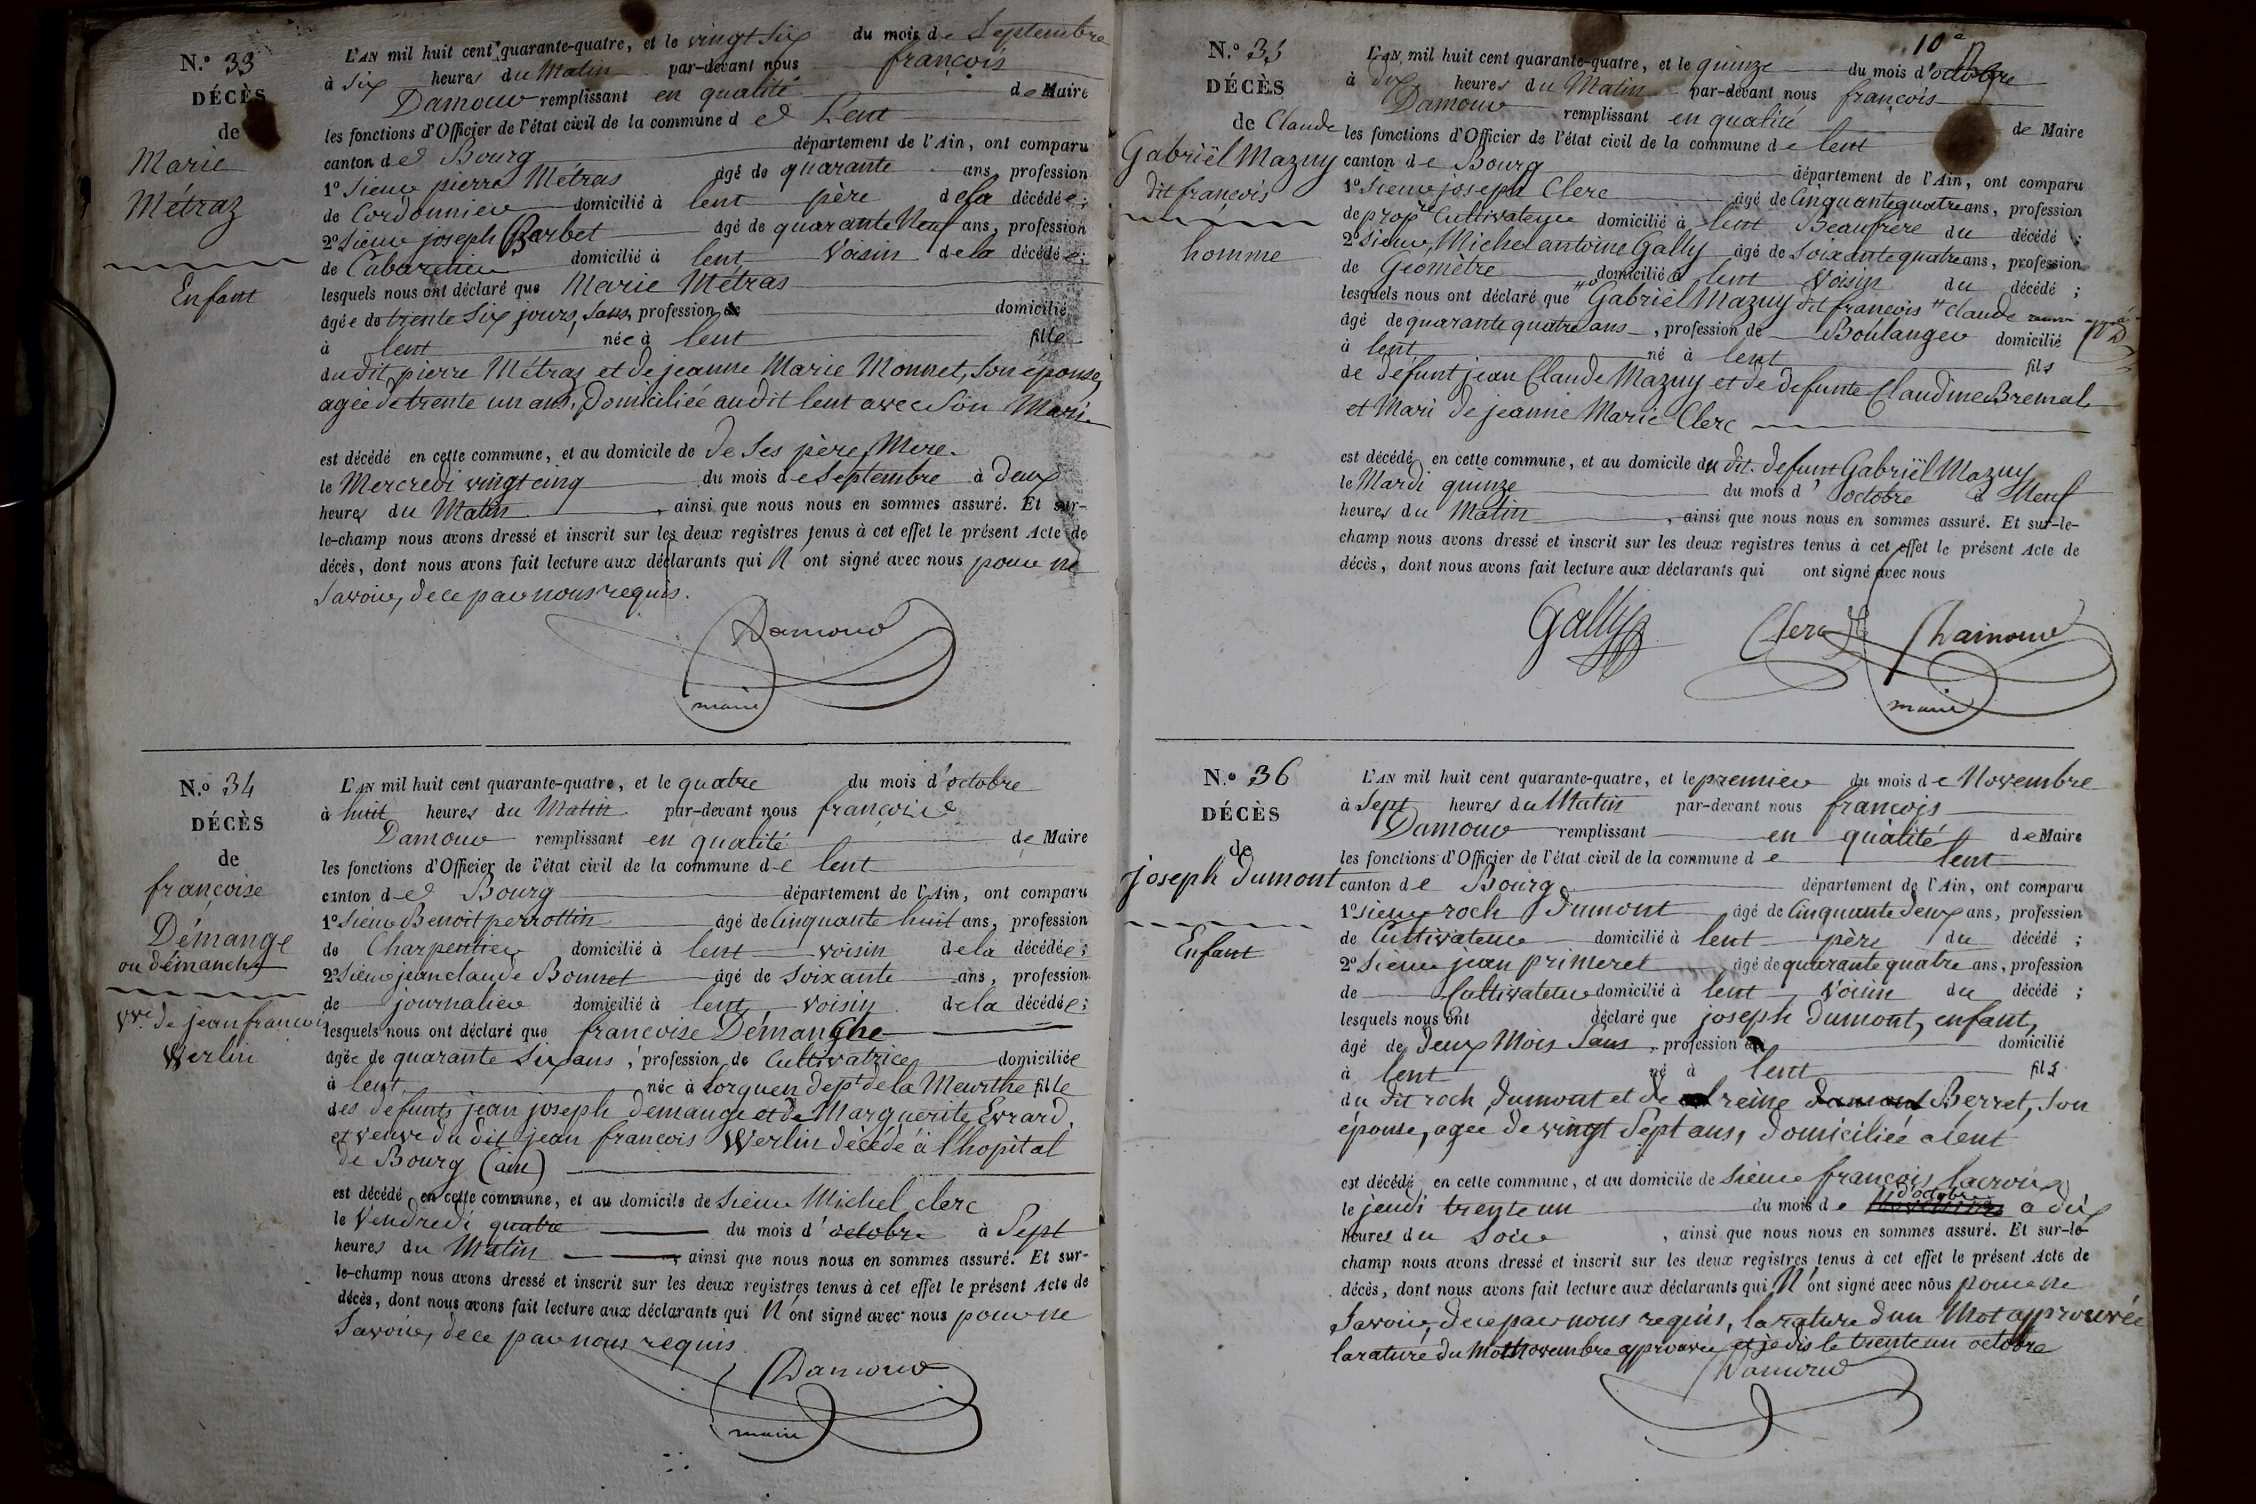 N.º 33
DÉCÈS
de
Marie
Métraz
Enfant
L'AN mil huit cent quarante-quatre, et le vingt six du mois de Septembre
à Six heures du Matin par-devant nous françois
Damour remplissant en qualité de Maire
les fonctions d'Officier de l'état civil de la commune de Lent
canton de Bourg département de l'Ain, ont comparu
1º Sieur pierre Métras âgé de quarante ans profession
de Cordonnier domicilié à lent père de la décédée;
2º Sieur joseph Barbet âgé de quarante Neuf ans, profession
de Cabaretier domicilié à lent Voisin de la décédée;
lesquels nous ont déclaré que Marie Métras
âgée de trente Six jours, Sans profession domicilié
à lent née à lent fille
du dit pierre Métraz et de jeanne Marie Monnet, Son épouse,
agée de trente un ans, Domiciliée au dit lent avec Son Mari
est décédé en cette commune, et au domicile de de Ses père, Mere.
le Mercredi vingt cinq du mois de Septembre à Deux
heures du Matin, ainsi que nous nous en sommes assuré. Et sur-
le-champ nous avons dressé et inscrit sur les deux registres tenus à cet effet le présent Acte de
décès, dont nous avons fait lecture aux déclarants qui N'ont signé avec nous pour ne
Savoir, de ce par nous requis.
Damour
maire
N.º 34
DÉCÈS
de
françoise
Démange
ou démanche
vve de jean francois
Werlin
L'AN mil huit cent quarante-quatre, et le quatre du mois d'octobre
à huit heures du Matin par-devant nous françois
Damour remplissant en qualité de Maire
les fonctions d'Officier de l'état civil de la commune de lent
canton de Bourg département de l'Ain, ont comparu
1º Sieur Benoit perrottin âgé de Cinquante huit ans, profession
de Charpentier domicilié à lent voisin de la décédée;
2º Sieur jean claude Bonnet âgé de Soixante ans, profession
de journalier domicilié à lent, voisin de la décédée;
lesquels nous ont déclaré que francoise Démanche
âgée de quarante Six ans, profession de Cultivatrice domiciliée
à lent née à Lorquen dept de la Meurthe fille
des defunts jean joseph demange et de Marguerite Evrard,
et veuve du dit jean françois Werlin décédé à l'hopital
de Bourg (ain)
est décédé en cette commune, et au domicile de Sieur Michel clerc
le Vendredi quatre du mois d'octobre à Sept
heures du Matin, ainsi que nous nous en sommes assuré. Et sur-
le-champ nous avons dressé et inscrit sur les deux registres tenus à cet effet le présent Acte de
décès, dont nous avons fait lecture aux déclarants qui N'ont signé avec nous pour ne
Savoir, de ce par nous requis
Damour
maire
10e
N.º 35
DÉCÈS
de Claude
Gabriël Mazuy
dit françois
homme
L'AN mil huit cent quarante-quatre, et le quinze du mois d'octobre
à dix heures du Matin par-devant nous françois
Damour remplissant en qualité de Maire
les fonctions d'Officier de l'état civil de la commune de lent
canton de Bourg département de l'Ain, ont comparu
1º Sieur joseph Clerc âgé de Cinquante quatre ans, profession
de propre Cultivateur domicilié à lent Beaufrère du décédé;
2º Sieur Michel antoine Gally âgé de Soixante quatre ans, profession
de Géomètre domicilié à lent Voisin du décédé;
lesquels nous ont déclaré que "Gabriël Mazuy dit françois" Claude
âgé de quarante quatre ans, profession de Boulanger domicilié
à lent né à lent fils
de défunt jean Claude Mazuy et de defunte Claudine Bremal
et Mari de jeanne Marie Clerc
est décédé en cette commune, et au domicile du dit. defunt Gabriël Mazuy
le Mardi quinze du mois d'octobre à Neuf
heures du Matin, ainsi que nous nous en sommes assuré. Et sur-le-
champ nous avons dressé et inscrit sur les deux registres tenus à cet effet le présent Acte de
décès, dont nous avons fait lecture aux déclarants qui ont signé avec nous
Gally Clerc Damour
maire
N.º 36
DÉCÈS
de
joseph dumont
Enfant
L'AN mil huit cent quarante-quatre, et le premier du mois de Novembre
à Sept heures du Matin par-devant nous françois
Damour remplissant en qualité de Maire
les fonctions d'Officier de l'état civil de la commune de lent
canton de Bourg département de l'Ain, ont comparu
1º Sieur roch Dumont âgé de Cinquante deux ans, profession
de Cultivateur domicilié à lent père du décédé;
2º Sieur jean primeret âgé de quarante quatre ans, profession
de Cultivateur domicilié à lent Voisin du décédé;
lesquels nous ont déclaré que joseph dumont, enfant,
âgé de deux Mois Sans, profession domicilié
à lent né à lent fils
du dit roch dumont et de reine dumont Berret, Son
épouse, agée de vingt Sept ans, domiciliée a lent
est décédé en cette commune, et au domicile de Sieur françois lacroix
le jeudi trente un du mois de Novembre d'octobre a dix
heures du Soir, ainsi que nous nous en sommes assuré. Et sur-le-
champ nous avons dressé et inscrit sur les deux registres tenus à cet effet le présent Acte de
décès, dont nous avons fait lecture aux déclarants qui N'ont signé avec nous pour ne
Savoir, de ce par nous requis, la rature d'un Mot approuvée
la rature du Mot Novembre approuvée et je dis le trente un octobre
Damour